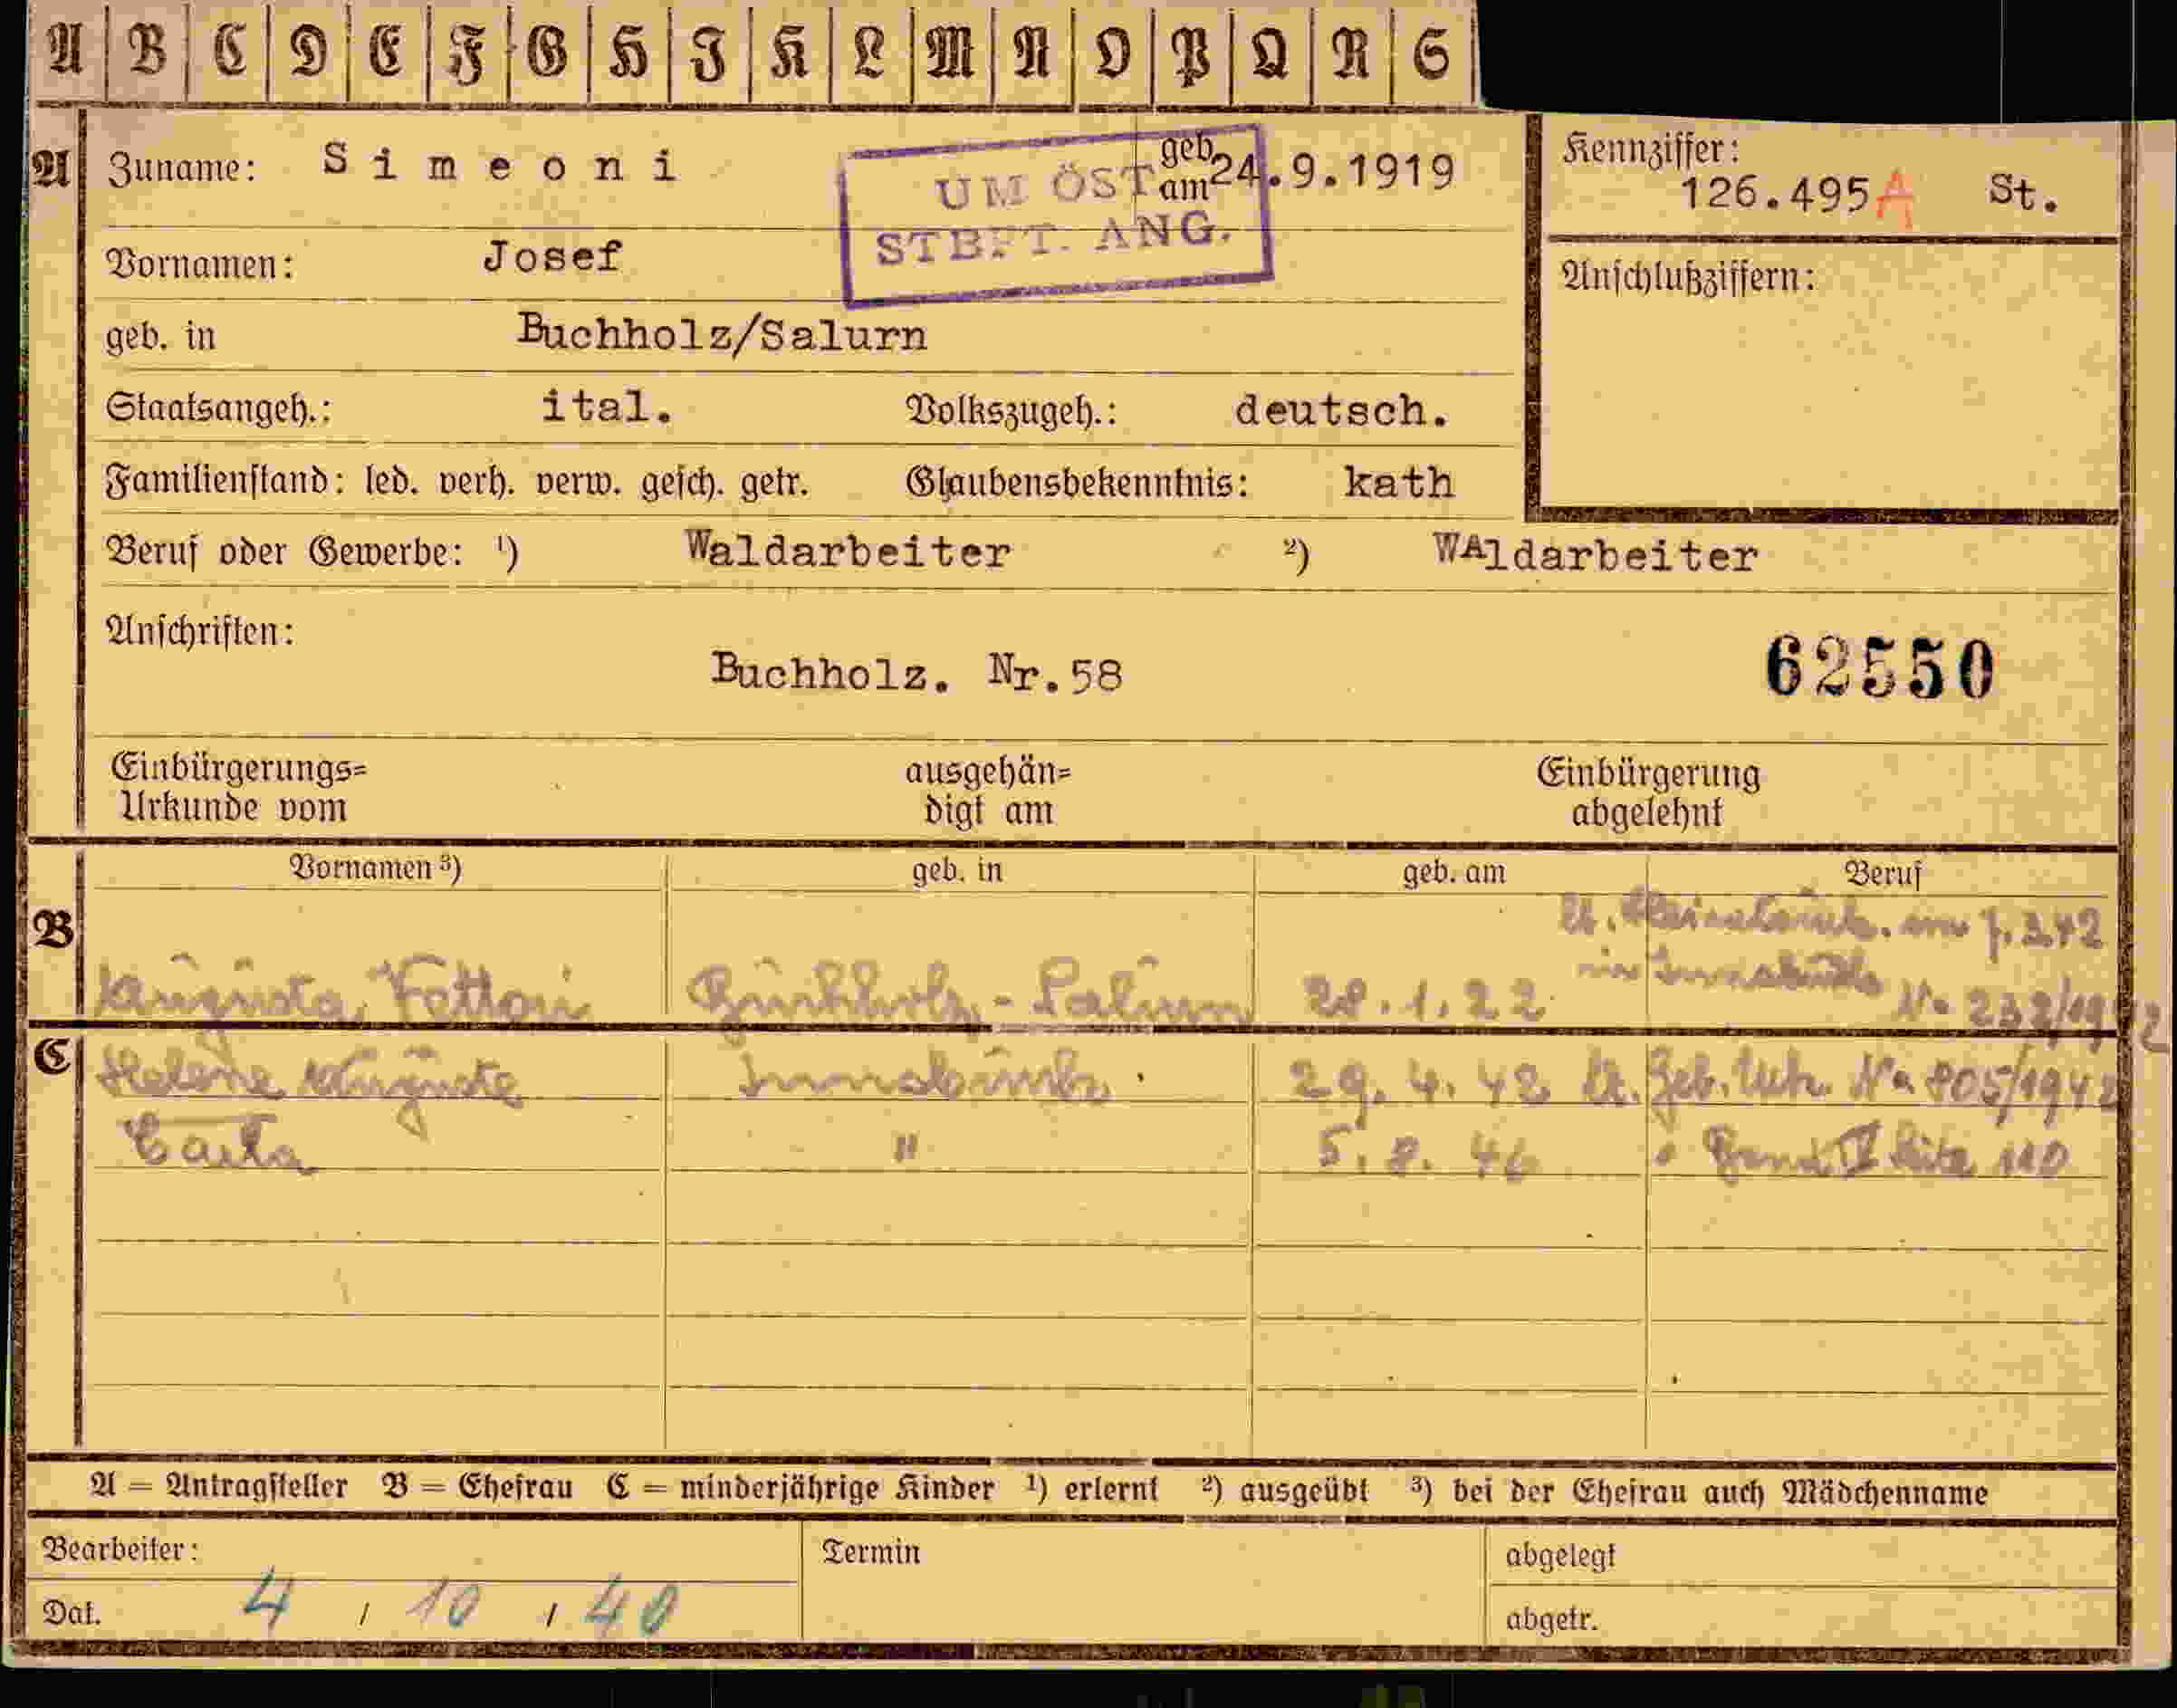 A B C D E F G H I K L M N O P Q R S
A Zuname: Simeoni geb. am 24.9.1919
Kennziffer: 126.495 A St.
UM ÖST
STBFT. ANG.
Vornamen: Josef
Anschlußziffern:
geb. in Buchholz/Salurn
Staatsangeh.: ital. Volkszugeh.: deutsch.
Familienstand: led. verh. verw. gesch. getr. Glaubensbekenntnis: kath
Beruf oder Gewerbe: ¹) Waldarbeiter ²) WAldarbeiter
Anschriften:
Buchholz. Nr.58 62550
Einbürgerungs= ausgehän= Einbürgerung
Urkunde vom digt am abgelehnt
Vornamen ³) geb. in geb. am Beruf
B
lt. Heiratsurk. vom 7.3.42
in Innsbruck
Augusta, Buchholz-Salurn 28.1.22 No 232/1942
C Helene Auguste Innsbruck 29.4.42 lt. Geb. Urk. No 805/1942
Carla " 5.8.46 " Band II Seite 110
A = Antragsteller B = Ehefrau C = minderjährige Kinder ¹) erlernt ²) ausgeübt ³) bei der Ehefrau auch Mädchenname
Bearbeiter: Termin abgelegt
Dat. 4 / 10 / 40 abgetr.